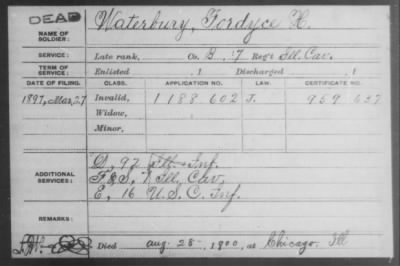 DEAD
NAME OF SOLDIER: Waterbury, Fordyce H.
SERVICE: Late rank, Co. B, 7 Reg't Ill. Cav.
TERM OF SERVICE: Enlisted , 1 Discharged , 1
DATE OF FILING. CLASS. APPLICATION NO. LAW. CERTIFICATE NO.
1897, Mar. 27 Invalid, 1188 602 J. 959 637
Widow,
Minor,
D, 92 Ill. Inf.
ADDITIONAL SERVICES: F&S, 7 Ill. Cav.
E, 16 U.S.C. Inf.
REMARKS:
Died Aug 28, 1900, at Chicago Ill